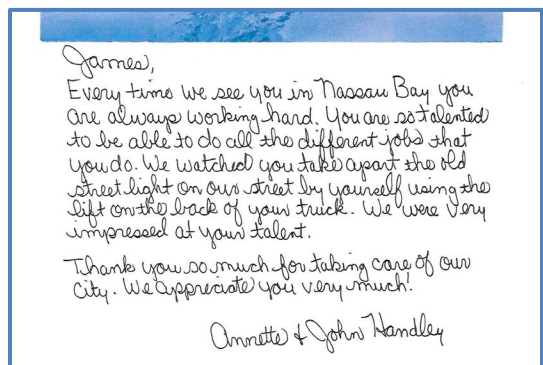 James,
Every time we see you in Nassau Bay you
are always working hard. You are so talented
to be able to do all the different jobs that
you do. We watched you take apart the old
street light on our street by yourself using the
lift on the back of your truck. We were very
impressed at your talent.
Thank you so much for taking care of our
city. We appreciate you very much!
Annette & John Handley